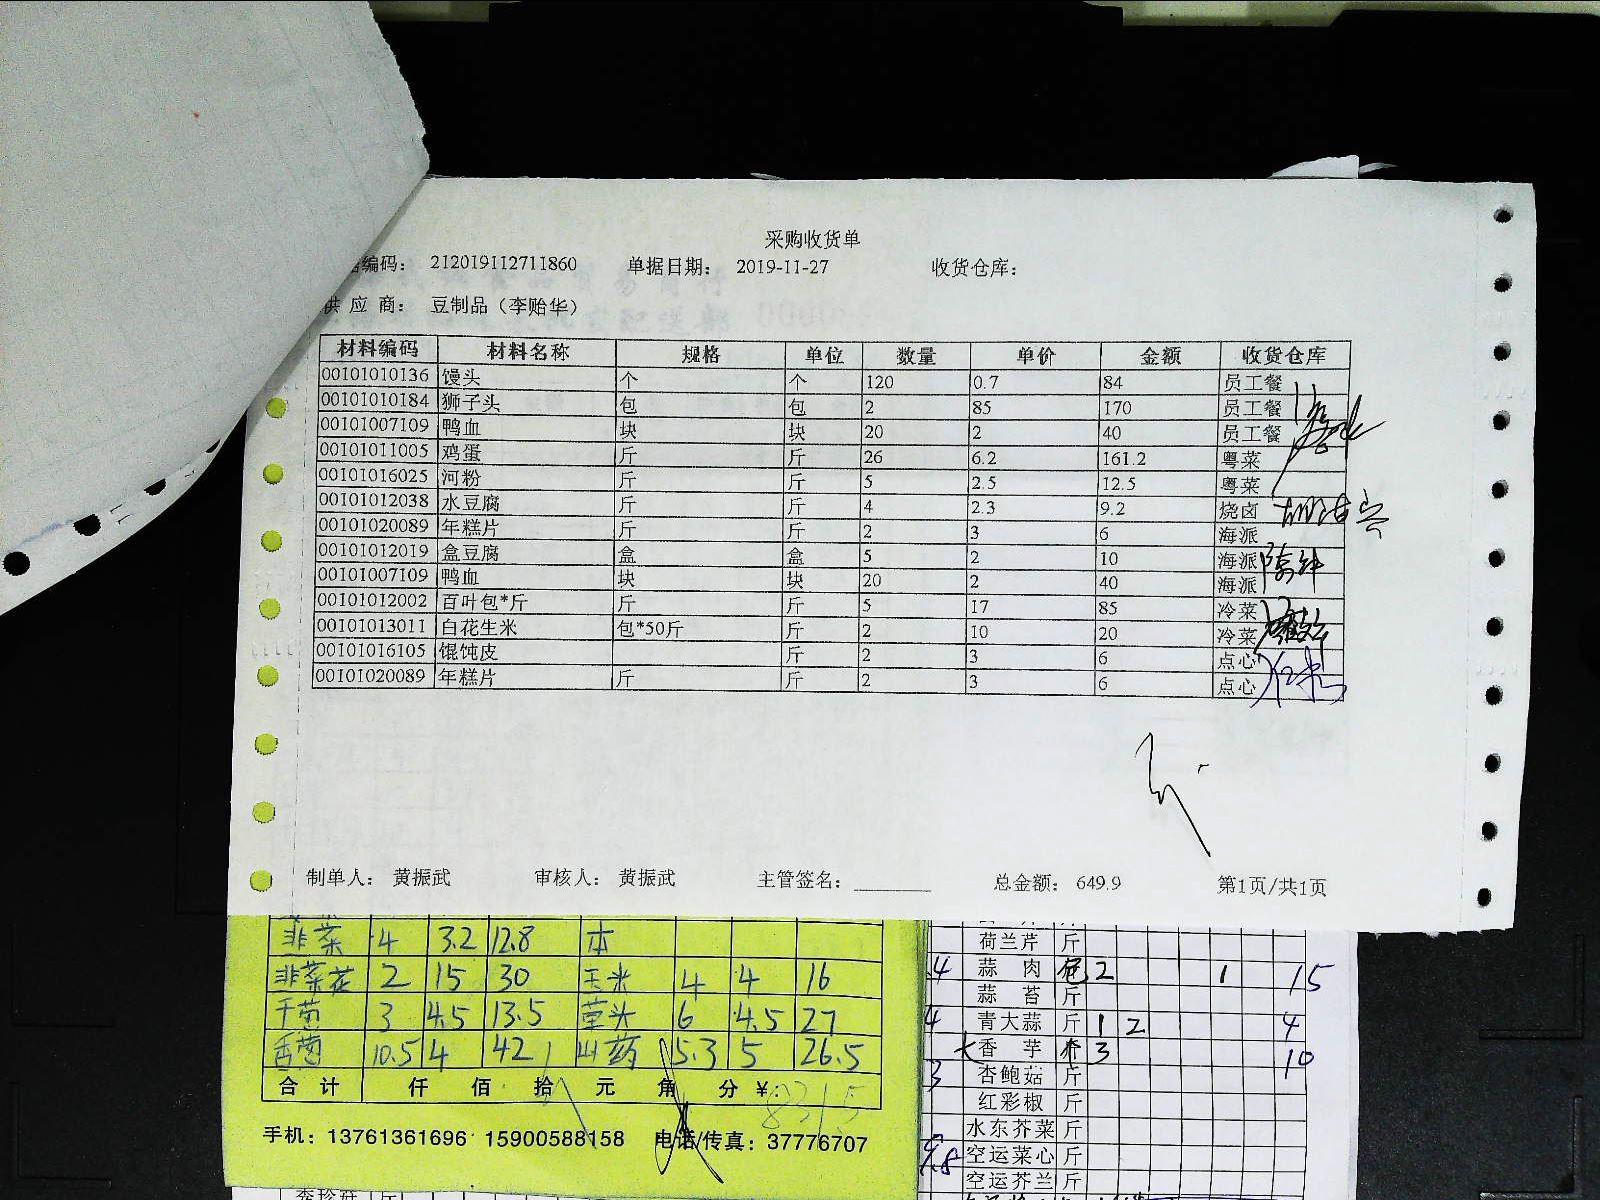 采购收货单
编码： 212019112711860 单据日期： 2019-11-27 收货仓库：
供 应 商： 豆制品（李贻华）
材料编码 材料名称 规格 单位 数量 单价 金额 收货仓库
00101010136 馒头 个 个 120 0.7 84 员工餐
00101010184 狮子头 包 包 2 85 170 员工餐
00101007109 鸭血 块 块 20 2 40 员工餐
00101011005 鸡蛋 斤 斤 26 6.2 161.2 粤菜
00101016025 河粉 斤 斤 5 2.5 12.5 粤菜
00101012038 水豆腐 斤 斤 4 2.3 9.2 烧卤
00101020089 年糕片 斤 斤 2 3 6 海派
00101012019 盒豆腐 盒 盒 5 2 10 海派
00101007109 鸭血 块 块 20 2 40 海派
00101012002 百叶包*斤 斤 斤 5 17 85 冷菜
00101013011 白花生米 包*50斤 斤 2 10 20 冷菜
00101016105 馄饨皮 斤 2 3 6 点心
00101020089 年糕片 斤 斤 2 3 6 点心
制单人： 黄振武 审核人： 黄振武 主管签名： 总金额： 649.9 第1页/共1页
韭菜 4 3.2 12.8 本
韭菜花 2 15 30 玉米 4 4 16
3 4.5 13.5 6 4.5 27
香菌 10.5 4 42 山药 5.3 5 26.5
合 计 仟 佰 拾 元 角 分 ¥:
手机：13761361696 15900588158 电话/传真：37776707
荷兰芹 斤
4 蒜 肉 包 2 1 15
蒜 苔 斤
4 青大蒜 斤 1 2 4
香 芋 斤 3 10
3 杏鲍菇 斤
红彩椒 斤
水东芥菜 斤
9.8 空运菜心 斤
空运芥兰 斤